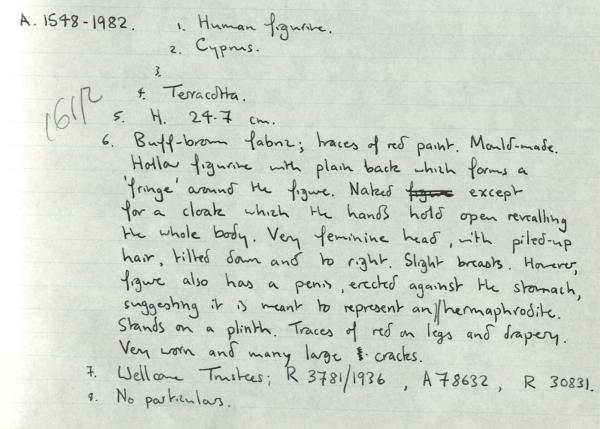 A. 1548-1982. 1. Human figurine.
2. Cyprus.
3.
4. Terracotta.
1612
5. H. 24.7 cm.
6. Buff-brown fabric; traces of red paint. Mould-made.
Hollow figurine with plain back which forms a
'fringe' around the figure. Naked figure except
for a cloak which the hands hold open revealling
the whole body. Very feminine head, with piled-up
hair, tilted down and to right. Slight breasts. However,
figure also has a penis, erected against the stomach,
suggesting it is meant to represent an hermaphrodite.
Stands on a plinth. Traces of red on legs and drapery.
Very worn and many large cracks.
7. Wellcome Trustees; R 3781/1936, A78632, R 30831.
8. No particulars.